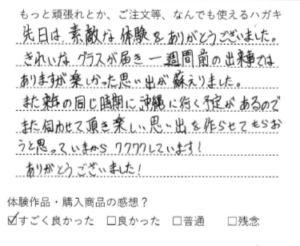 もっと頑張れとか、ご注文等、なんでも使えるハガキ
先日は素敵な体験をありがとうございました。
きれいなグラスが届き一週間前の出来事では
ありますが楽しかった思い出が蘇えりました。
また来年の同じ時期に沖縄に行く予定があるので
また伺わせて頂き楽しい思い出を作らせてもらお
うと思っていまからワクワクしています!
ありがとうございました!
体験作品・購入商品の感想?
☑すごく良かった □良かった □普通 □残念